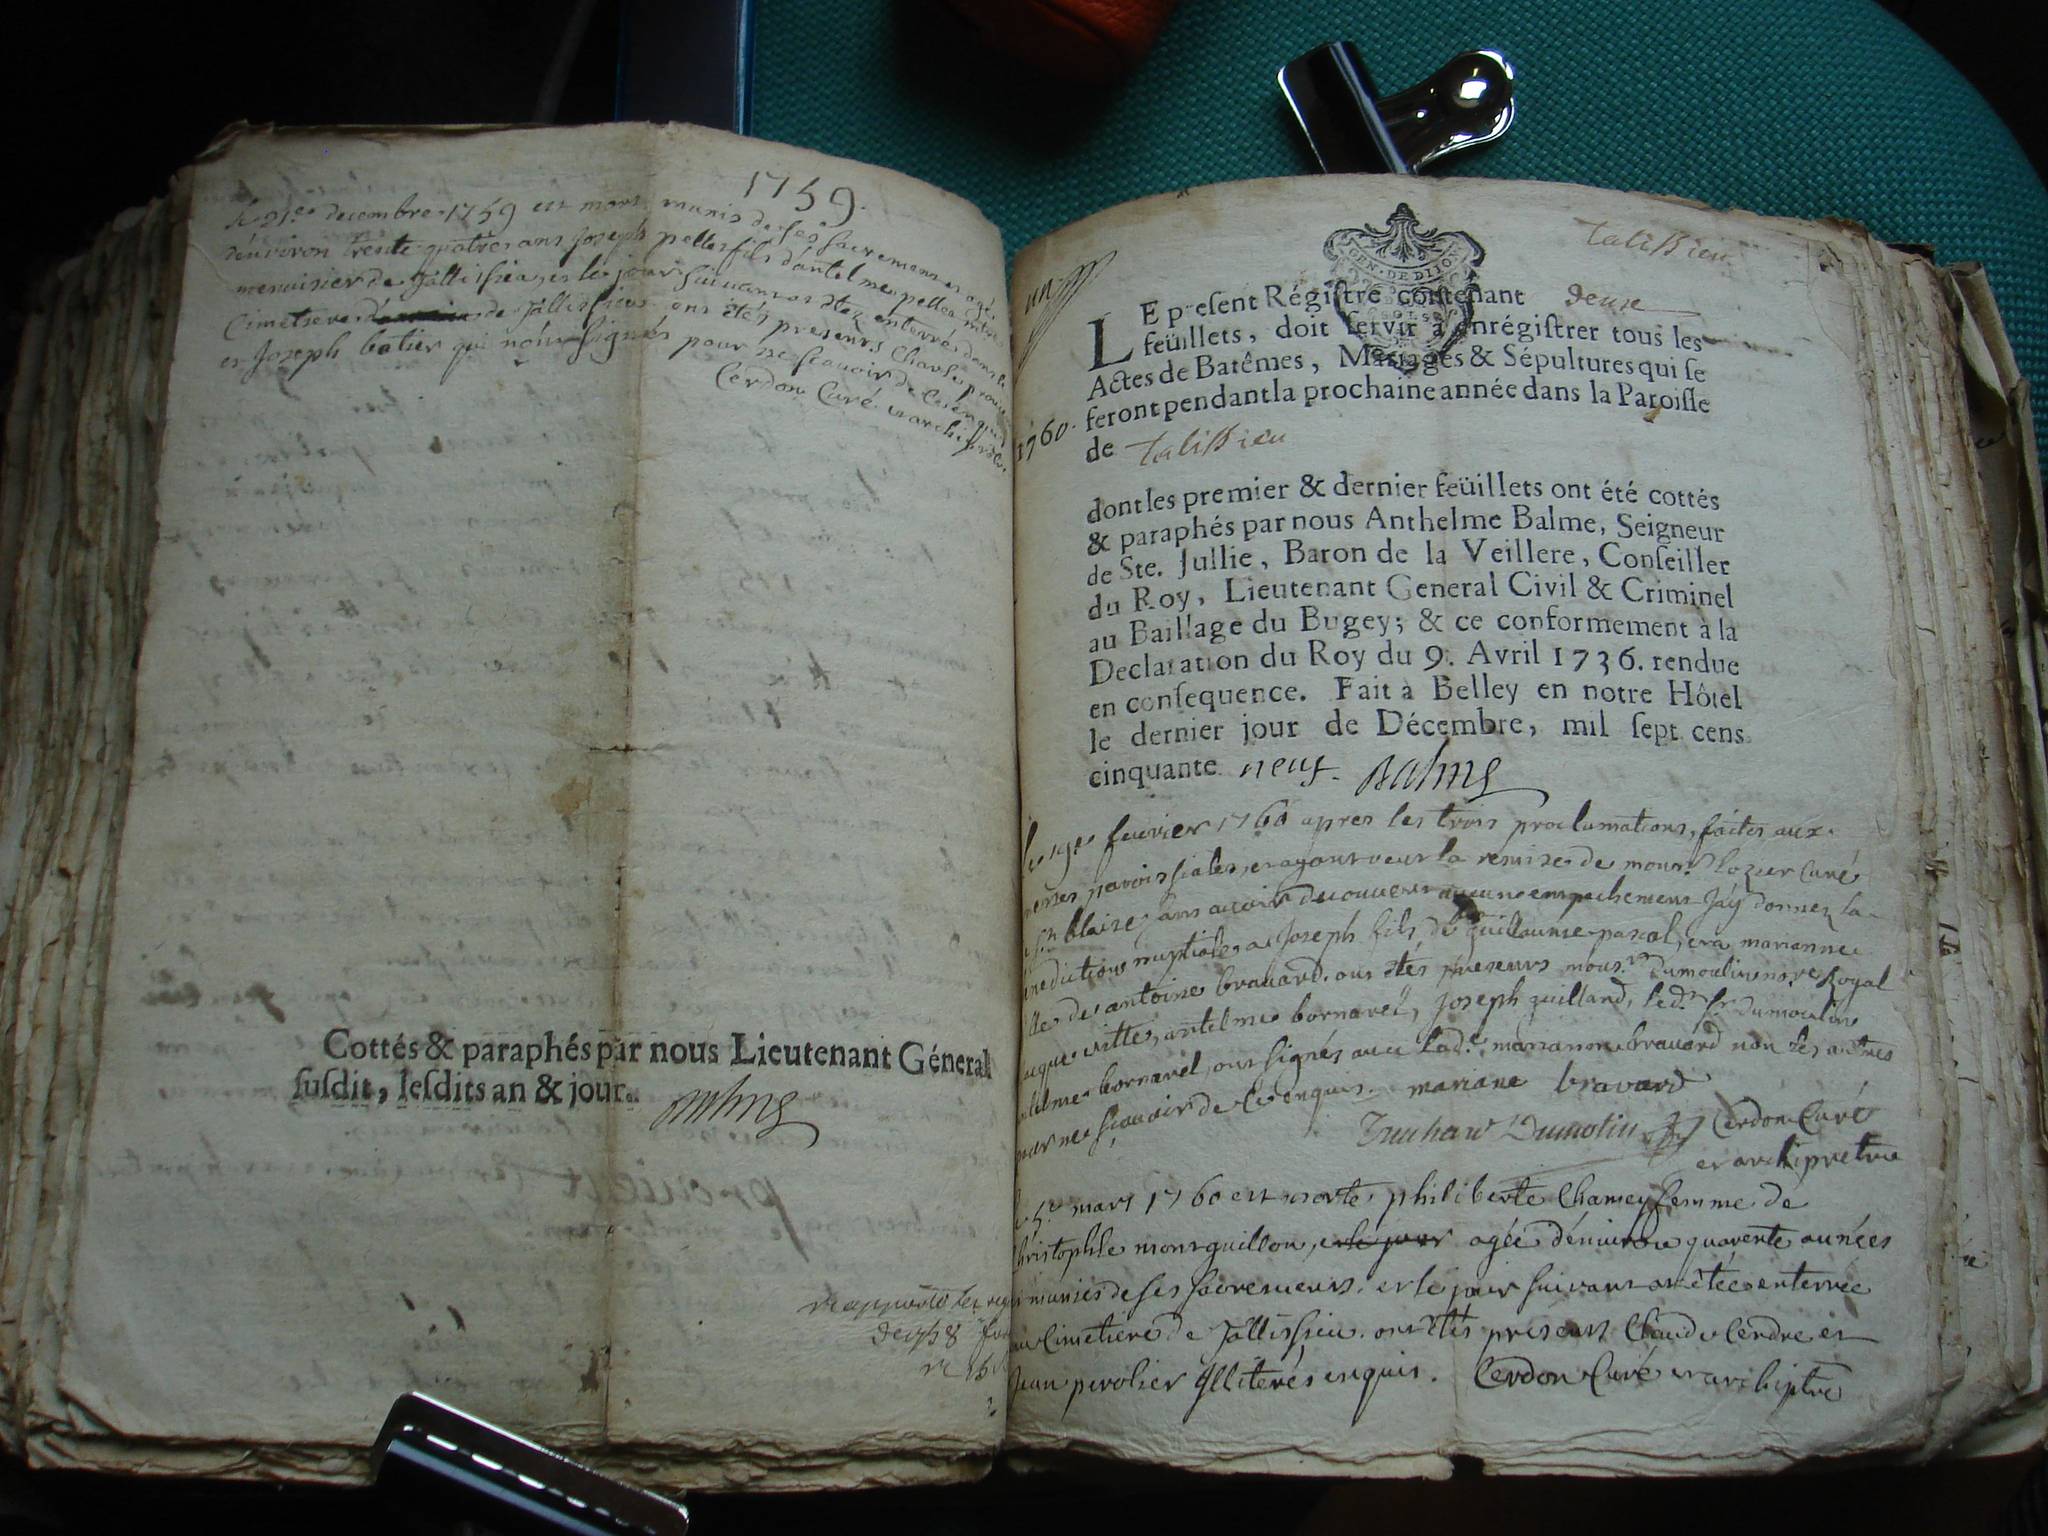 1759.
le 21e decembre 1759 est mort munis de ses sacremens et agé
d'environ trente quatres ans Joseph pellet fils d'antelme pellet mtre
menuisier de Tallissieu, et le jour suivant at étez enterré dans le
Cimetiere de Tallissieu ont étés presents Charles
et Joseph batier qui n'ont signés pour ne scavoir de ce enquis
Cerdon Curé et archiprêtre
Cottés & paraphés par nous Lieutenant Géneral
susdit, lesdits an & jour. Balme
talissieu
GEN. DE DIJON
un
LE present Régistre contenant deux
feüillets, doit servir à enrégistrer tous les
Actes de Batêmes, Mariages & Sépultures qui se
feront pendant la prochaine année dans la Paroisse
1760.
de talissieu
dont les premier & dernier feüillets ont été cottés
& paraphés par nous Anthelme Balme, Seigneur
de Ste. Jullie, Baron de la Veillere, Conseiller
du Roy, Lieutenant General Civil & Criminel
au Baillage du Bugey; & ce conformement à la
Declaration du Roy du 9. Avril 1736. rendue
en consequence. Fait à Belley en notre Hôtel
le dernier jour de Décembre, mil sept cens
cinquante neuf. Balme
le 19e fevrier 1760 apres les trois proclamations, faites aux
messes paroissiales, et ayant veut la remise de monsr Rozier Curé
de st blaise, sans avoir decouvert aucune empechement J'ay donnez la
benediction nuptiale a Joseph fils de guillaume pascal, et a marianne
fille de antoine bravard. ont étés presents monsr dumoulin notre Royal
Jaque vitte, antelme bornarel, Joseph guilland, led. sr dumoulin
antelme bornarel, ont signés avec lad.e marianne bravard non les autres
pour ne scavoir de ce enquis. mariane bravard
Dumolin Cerdon Curé
et archipretre
le 5e mars 1760 est morte philiberte Chamey femme de
Christophle montguillon, et le jour agée d'environ quarente années
munies de ses sacremens. et le jour suivant at étée enterrée
au Cimetiere de Tallissieu. ont étés presents Claude Cerdre et
Jean perolier Illiterés enquis. Cerdon Curé et archiptre